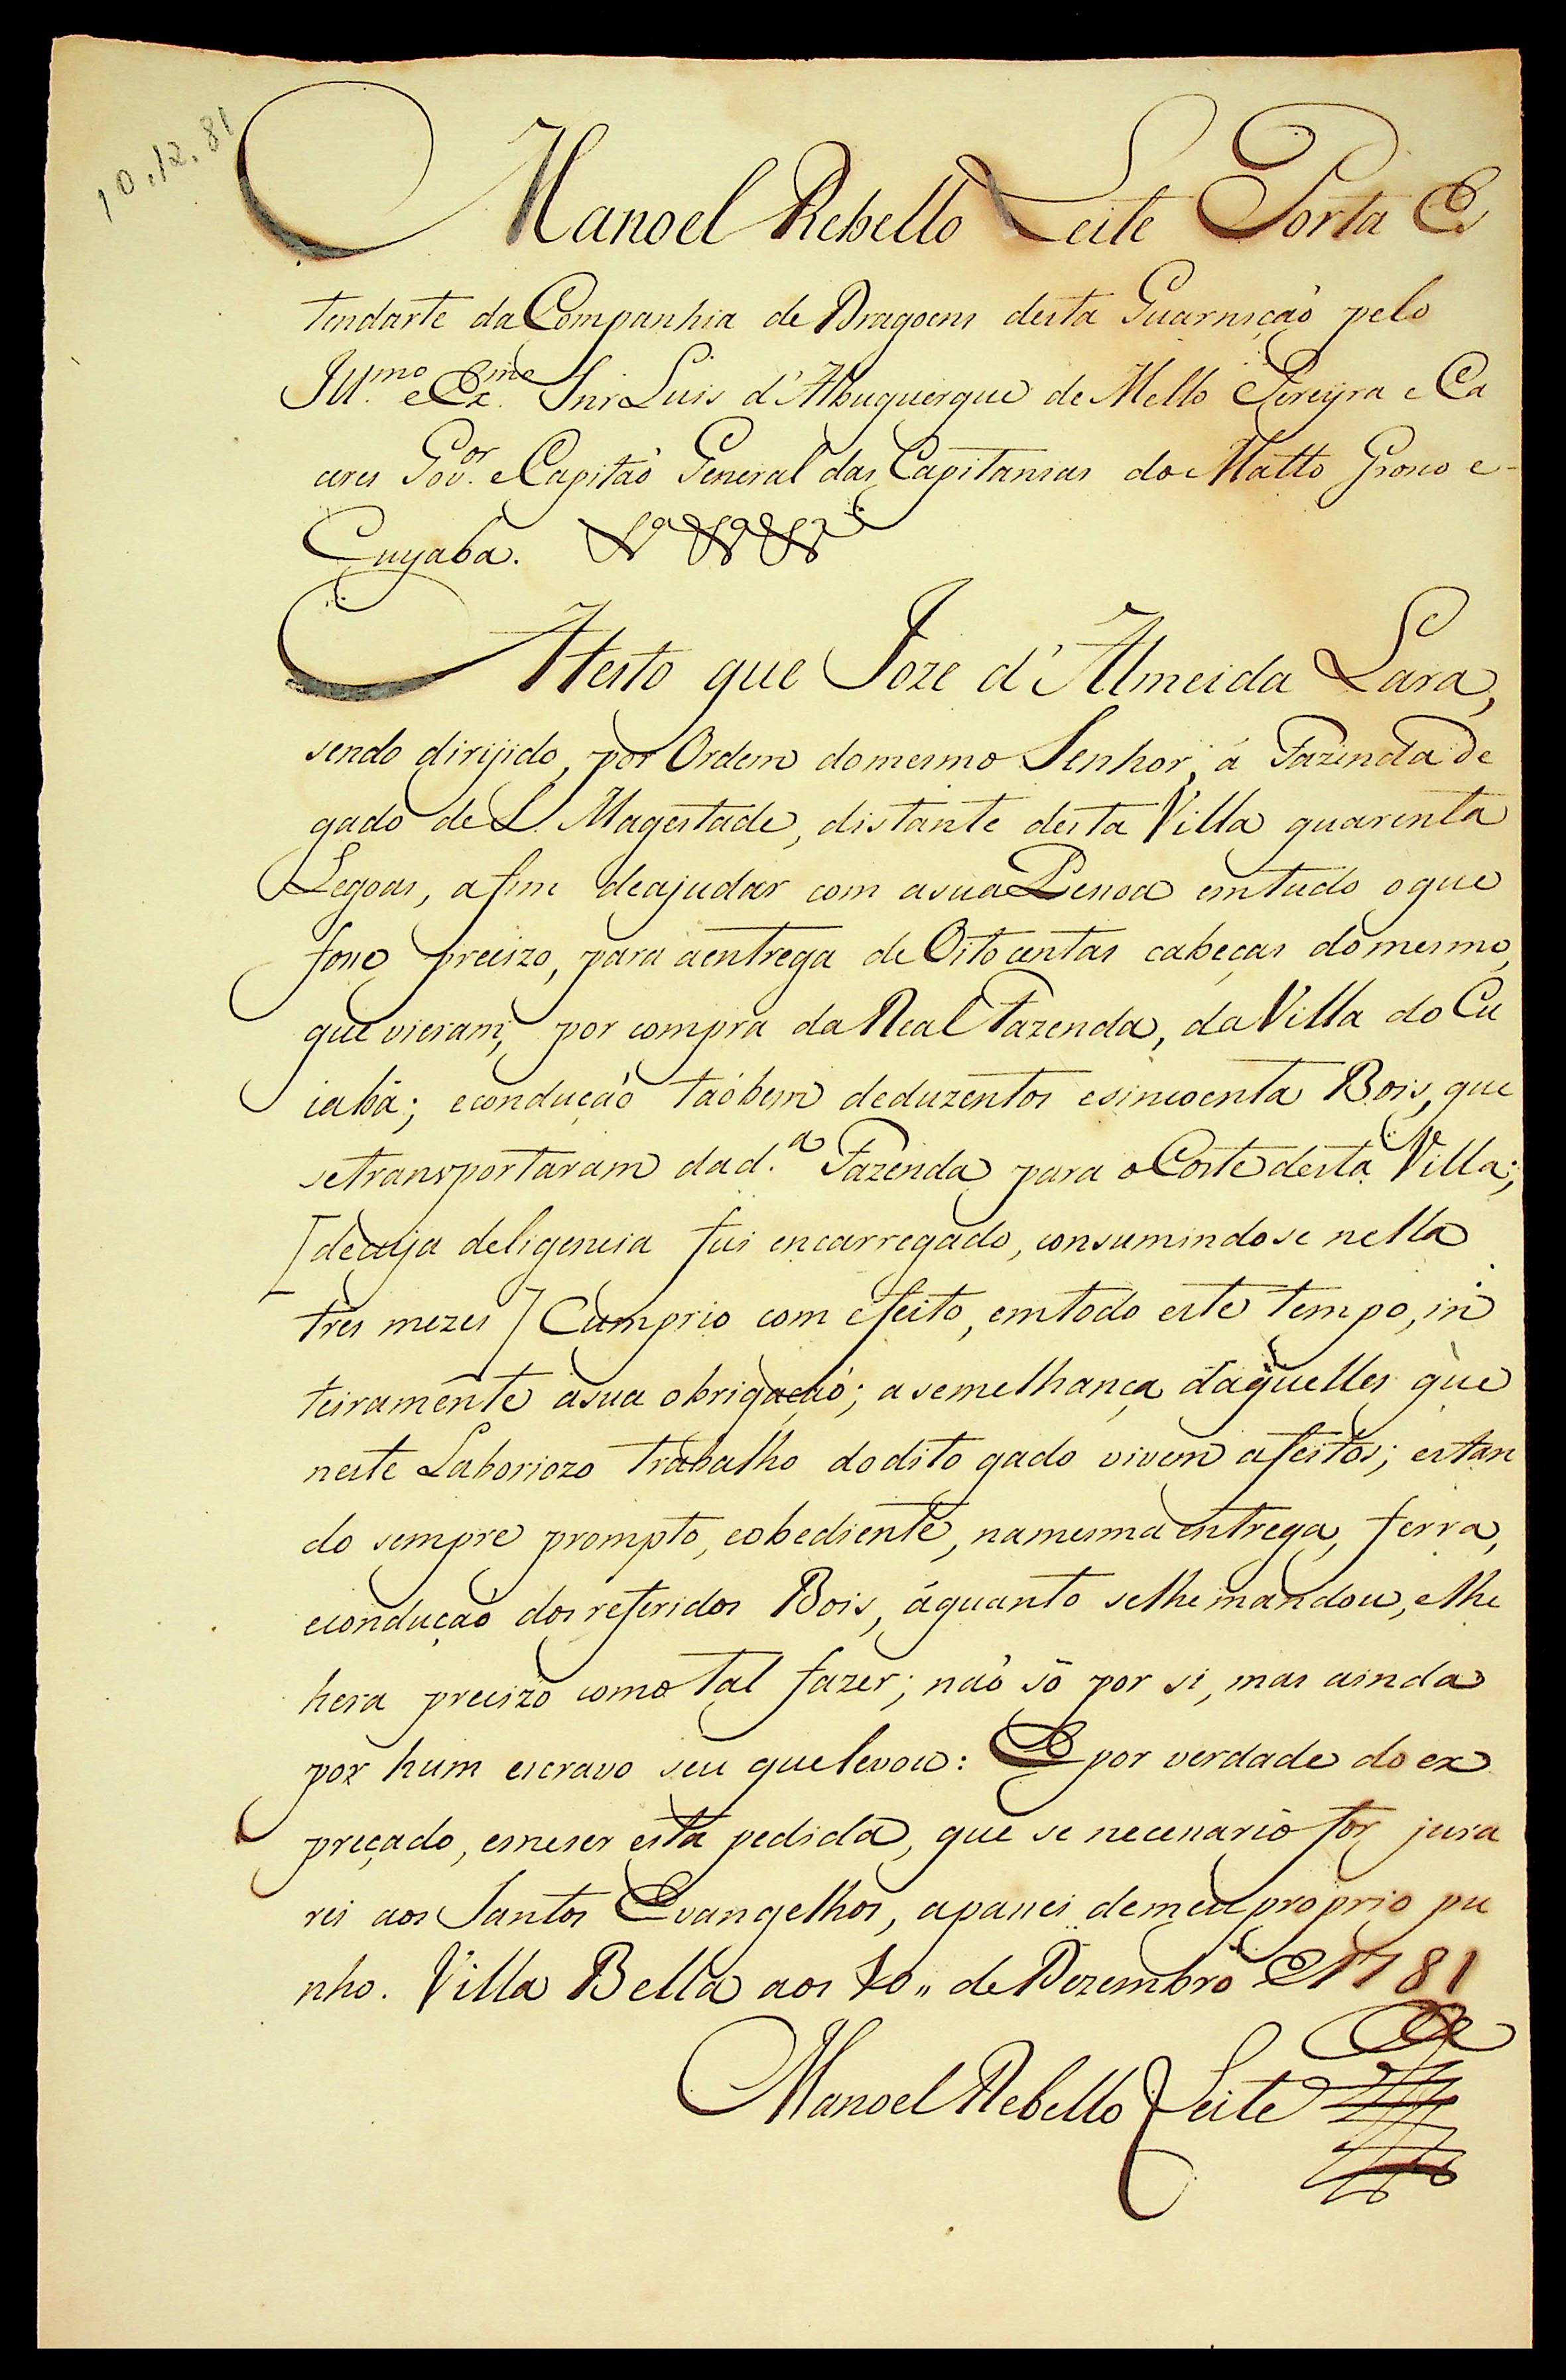 10.12.81
Manoel Rebello Leite Porta Es
tendarte da Companhia de Dragoens desta Guarnição pelo
Ill.mo e Ex.mo Snr Luis d'Albuquerque de Mello Pereyra e Ca
ceres Gov.or e Capitaõ General das Capitanias do Matto Grosso e
Cuyaba.
Atesto que Joze d'Almeida Lara,
sendo dirijido, por Ordem domesmo Senhor, á Fazenda de
gado de S. Magestade, distante desta Villa quarenta
Legoas, a fim deajudar com asua Pessoa emtudo oque
fosse precizo, para aentrega de Oito centas cabeças domesmo,
que vieram, por compra da Real Fazenda, da Villa do Cu
iabá; econduçaõ taõbem deduzentos esincoenta Bois, que
setransportaram dad.a Fazenda para o Corte desta Villa;
[decuja deligencia fui encarregado, consumindose nella
tres mezes] Cumprio com efeito, emtodo este tempo, in
teiramente asua obrigaçaõ; asemelhança daquelles que
neste Laboriozo trabalho dodito gado vivem afeitos; estan
do sempre prompto, eobediente, namesma entrega, ferra,
econduçaõ dos referidos Bois, áquanto selhe mandou, elhe
hera precizo como tal fazer; naõ só por si, mas ainda
por hum escravo seu quelevou: E por verdade do ex
preçado, emeser esta pedida, que se necessario for jura
rei aos Santos Evangelhos, apassei demeu proprio pu
nho. Villa Bella aos 10,, de Dezembro de 1781
Manoel Rebello Leite